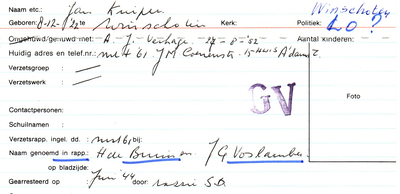 Naam etc.: Jan Kuiper Winschoten
Geboren: 8-12-'22 te Winschoten Kerk: Politiek: LO?
Ongehuwd/gehuwd met: A. J. Verhage 27-8-'52 Aantal kinderen:
Huidig adres en telef.nr.: mrt 61 JM Coenenstr. 15 Huis A'dam Z.
Verzetsgroep :
Verzetswerk :
GV
Foto
Contactpersonen:
Schuilnamen :
Verzetsrapp. ingel. dd. : mrt 61 bij:
Naam genoemd in rapp.: H de Bruin en JG Voslamber
op bladzijde:
Gearresteerd op : Juni '44 door: S.D.